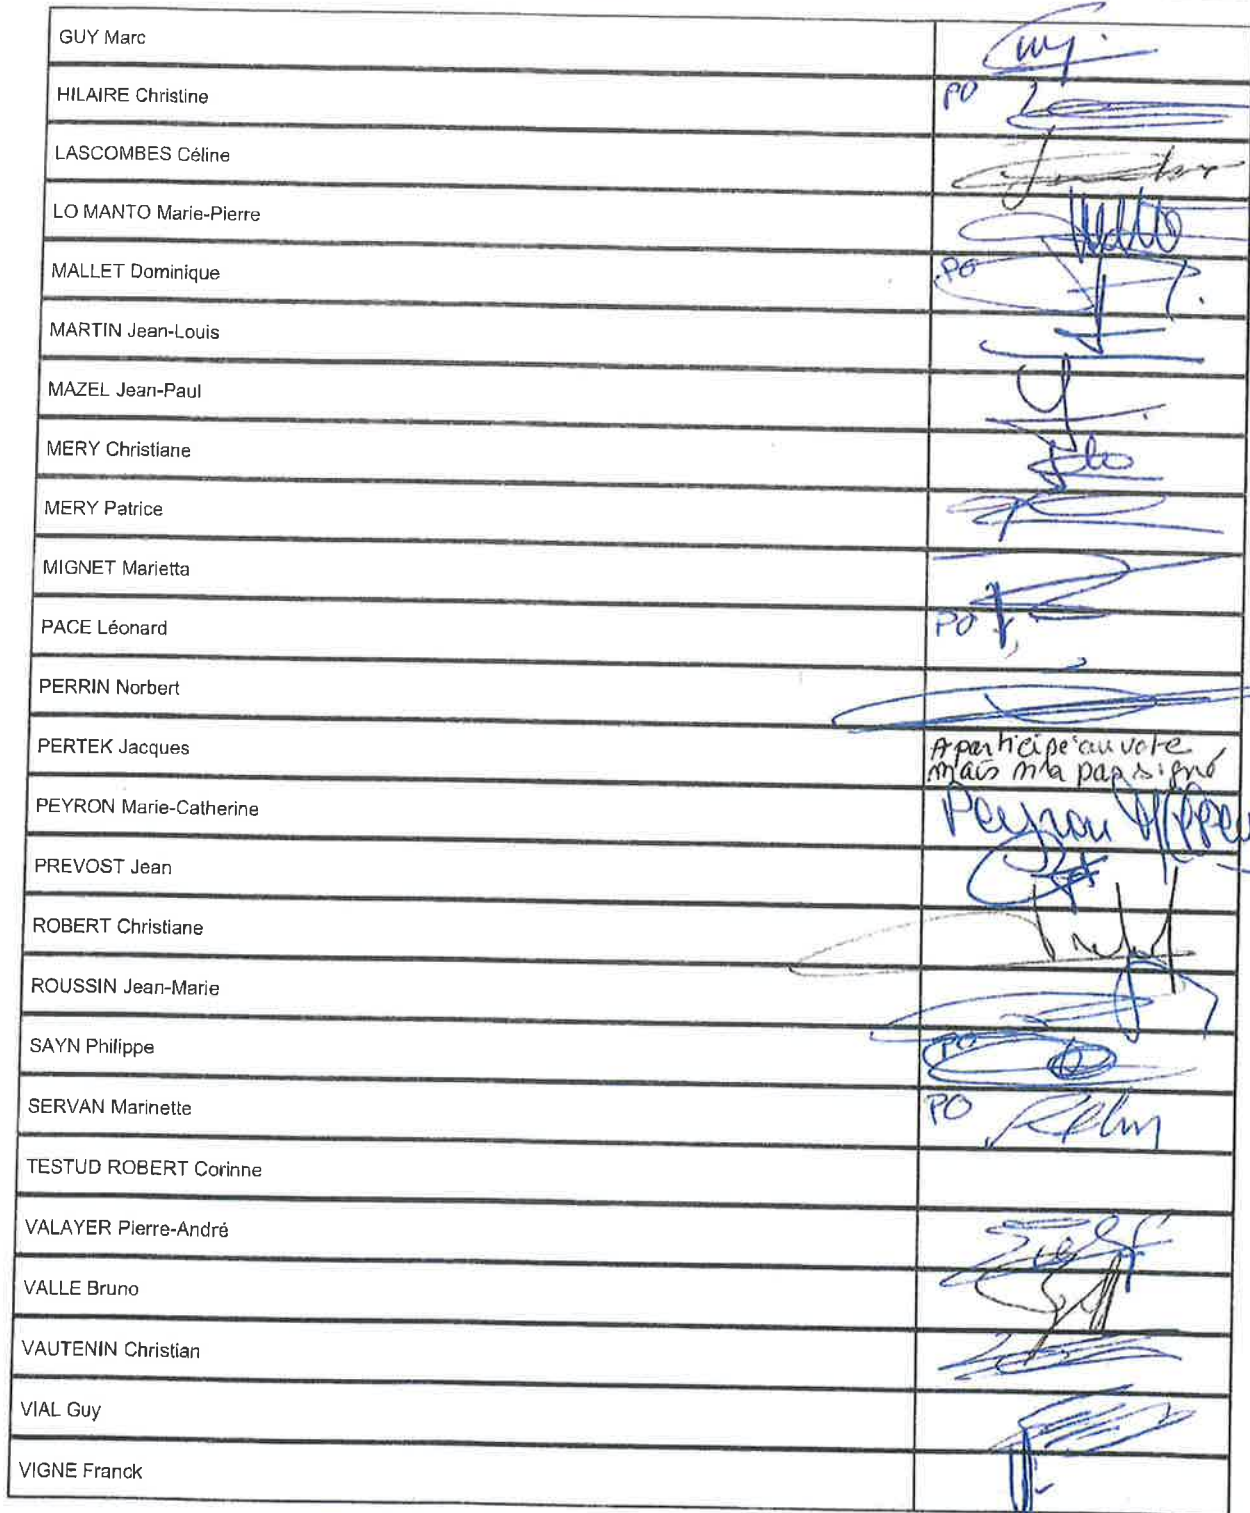 GUY Marc
HILAIRE Christine
PO
LASCOMBES Céline
LO MANTO Marie-Pierre
MALLET Dominique
PO
MARTIN Jean-Louis
MAZEL Jean-Paul
MERY Christiane
MERY Patrice
MIGNET Marietta
PACE Léonard
PO
PERRIN Norbert
PERTEK Jacques
A participé au vote
mais n'a pas signé
PEYRON Marie-Catherine
Peyron
PREVOST Jean
ROBERT Christiane
ROUSSIN Jean-Marie
SAYN Philippe
PO
SERVAN Marinette
PO
TESTUD ROBERT Corinne
VALAYER Pierre-André
VALLE Bruno
VAUTENIN Christian
VIAL Guy
VIGNE Franck